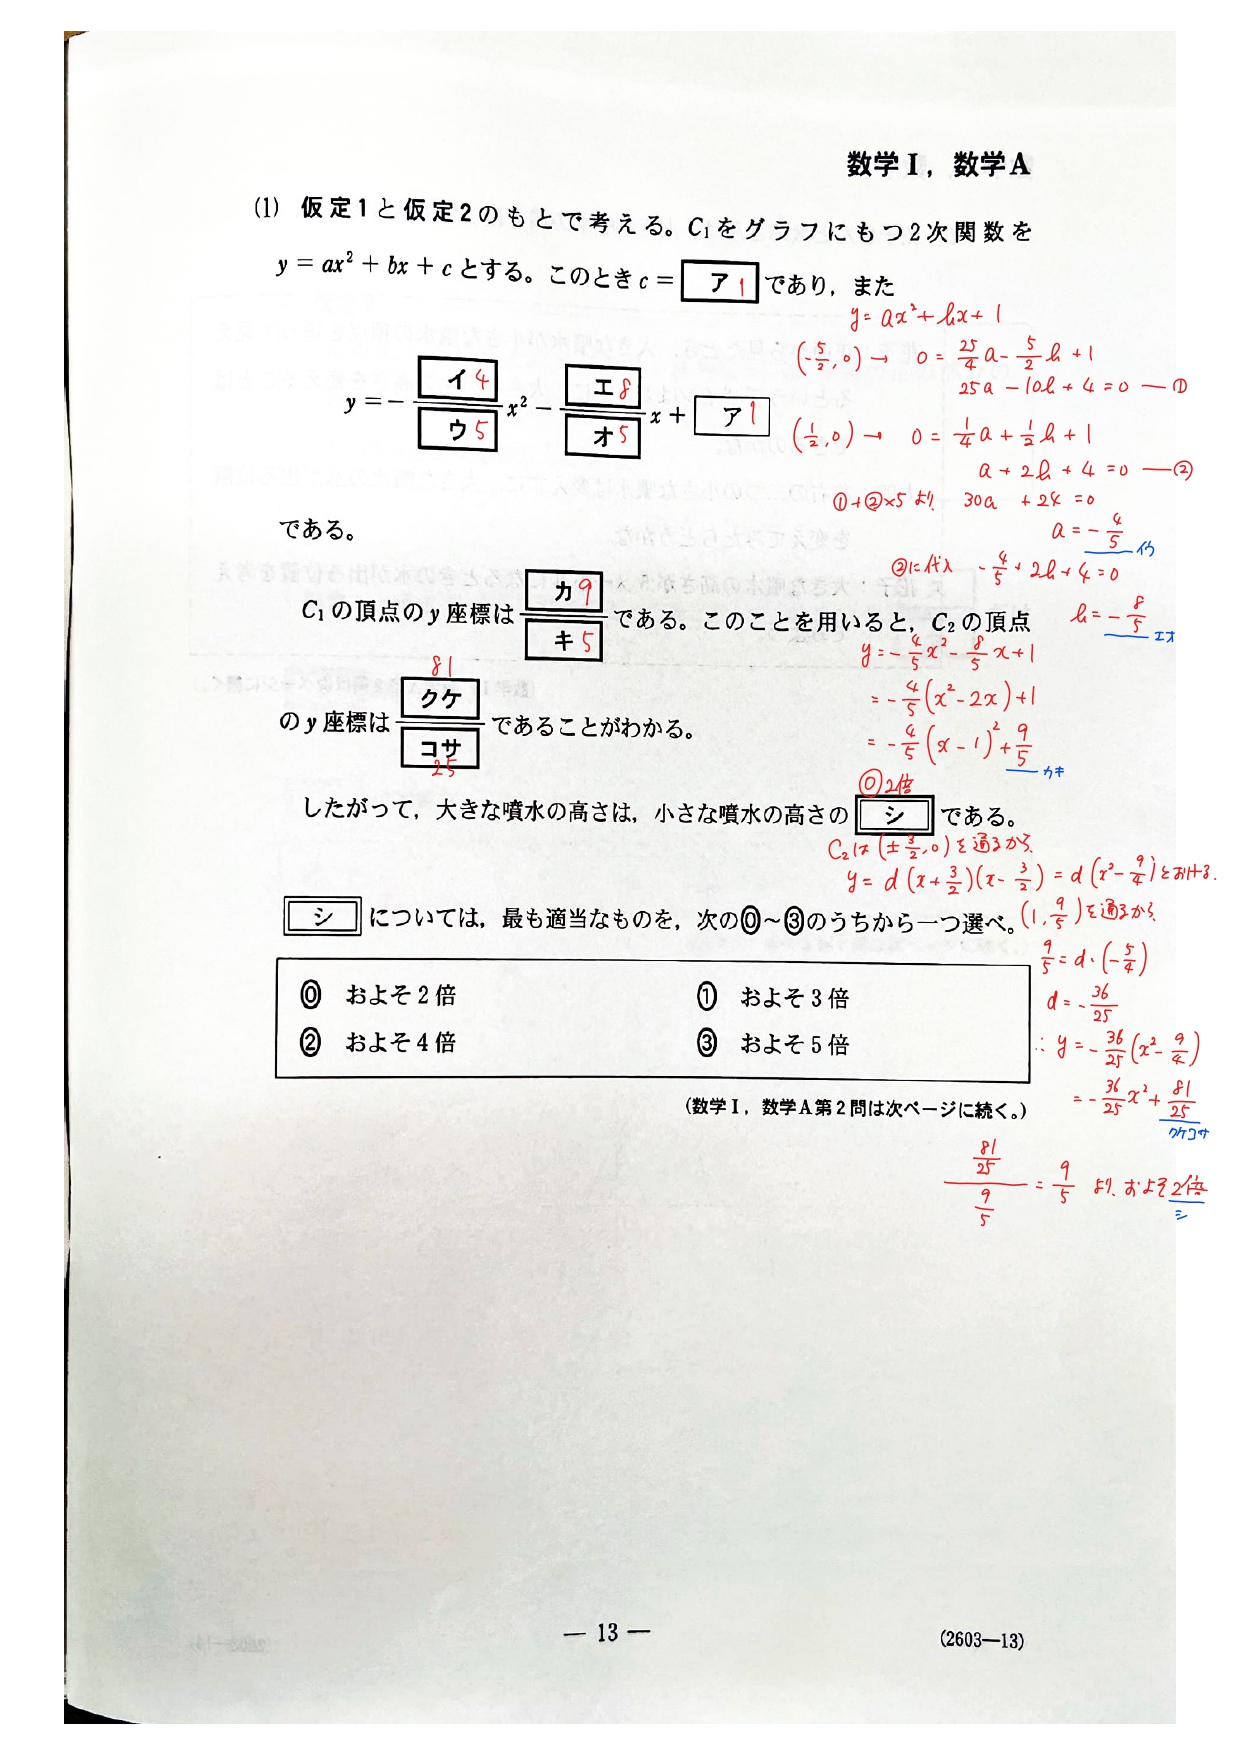 数学Ⅰ，数学A
(1) 仮定1と仮定2のもとで考える。C₁をグラフにもつ2次関数を
y = ax² + bx + c とする。このとき c = ア 1 であり，また
y = ax² + bx + 1
(-5/2, 0) → 0 = 25/4 a - 5/2 b + 1
25a - 10b + 4 = 0 — ①
y = - イ 4 / ウ 5 x² - エ 8 / オ 5 x + ア 1
(1/2, 0) → 0 = 1/4 a + 1/2 b + 1
a + 2b + 4 = 0 — ②
①+②×5 より 30a + 24 = 0
である。
a = -4/5 イウ
②に代入 -4/5 + 2b + 4 = 0
b = -8/5 エオ
C₁の頂点のy座標は カ 9 / キ 5 である。このことを用いると，C₂の頂点
y = -4/5 x² - 8/5 x + 1
= -4/5 (x² - 2x) + 1
= -4/5 (x - 1)² + 9/5 カキ
のy座標は 81 クケ / コサ 25 であることがわかる。
⓪ 2倍
したがって，大きな噴水の高さは，小さな噴水の高さの シ である。
C₂は (±3/2, 0) を通るから
y = d (x + 3/2)(x - 3/2) = d (x² - 9/4) とおける.
シ については，最も適当なものを，次の⓪～③のうちから一つ選べ。
(1, 9/5) を通るから
9/5 = d・(-5/4)
d = -36/25
∴ y = -36/25 (x² - 9/4)
= -36/25 x² + 81/25 クケコサ
⓪ およそ2倍 ① およそ3倍
② およそ4倍 ③ およそ5倍
(数学Ⅰ，数学A第2問は次ページに続く。)
81/25 / 9/5 = 9/5 より、およそ2倍 シ
— 13 —
(2603—13)